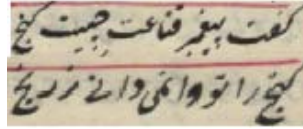 گفت پیغمبر قناعت چیست گنج
گنج را تو وا نمی دانی ز رنج